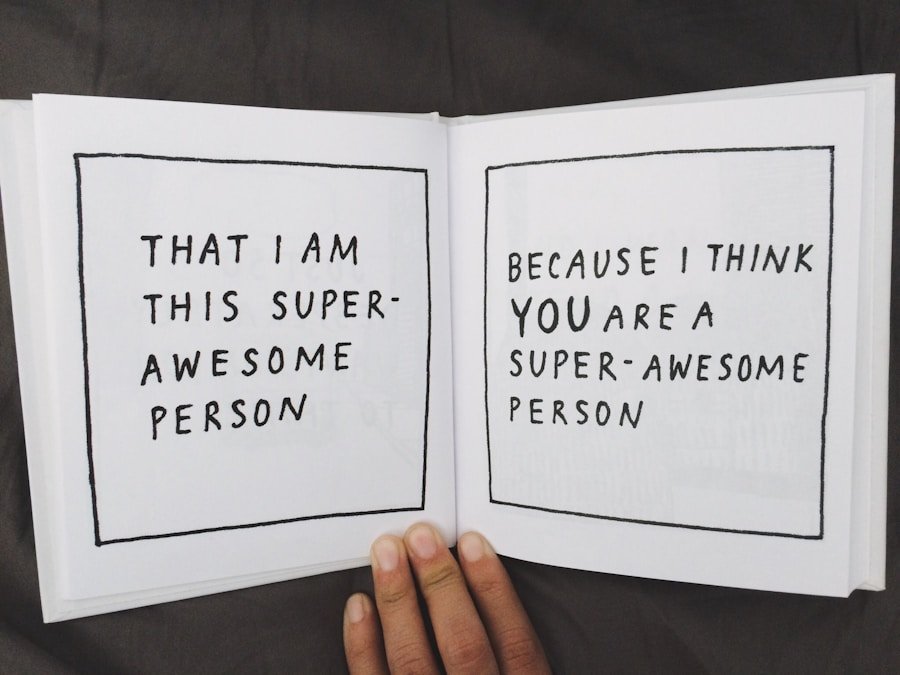 THAT I AM
THIS SUPER-
AWESOME
PERSON
BECAUSE I THINK
YOU ARE A
SUPER-AWESOME
PERSON